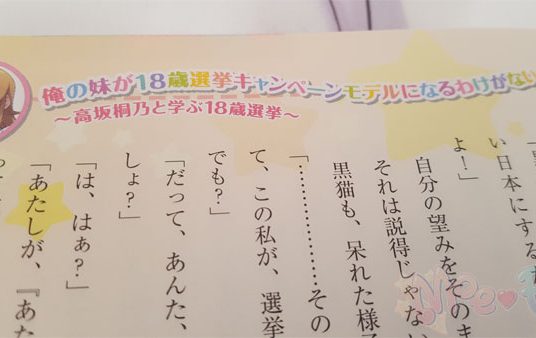 俺の妹が18歳選挙キャンペーンモデルになるわけがない
～高坂桐乃と学ぶ18歳選挙～
い日本にするた
よ!」
自分の望みをそのま
それは説得じゃない
黒猫も、呆れた様子
「……………その
て、この私が、選挙
でも?」
「だって、あんた、
しょ?」
「は、はぁ?」
「あたしが、『あた